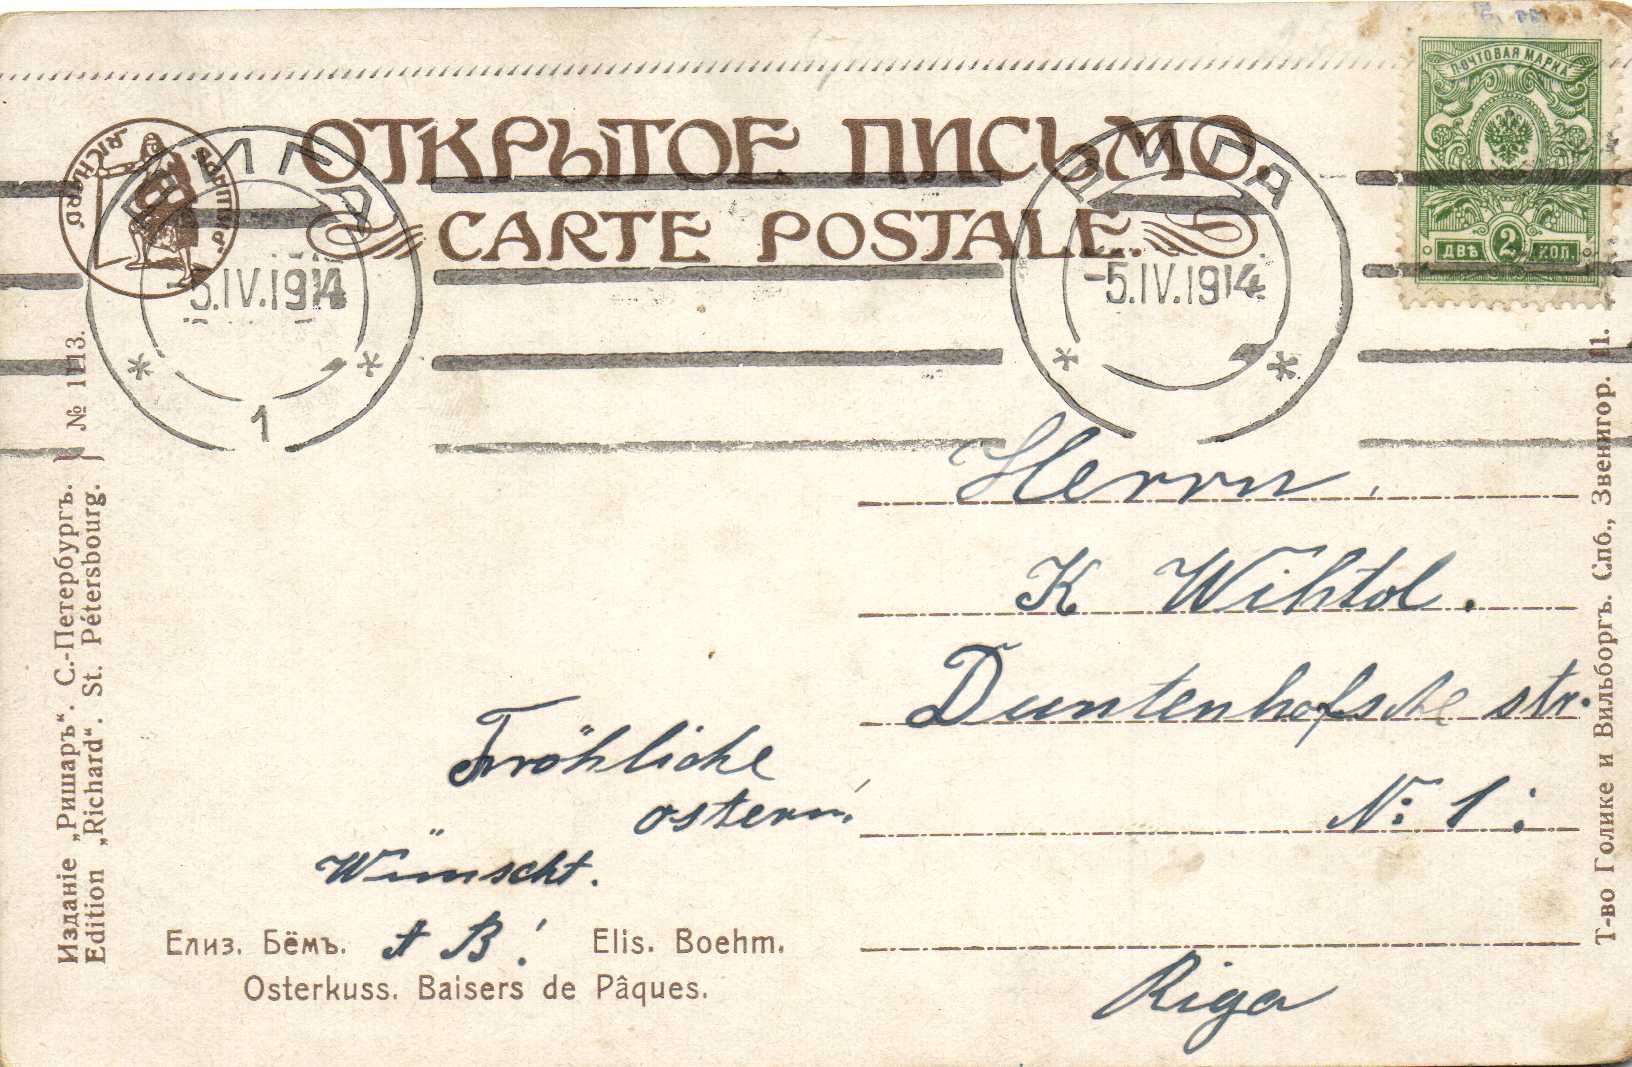 ПОЧТОВАЯ МАРКА
ОТКРЫТОЕ ПИСЬМО.
CARTE POSTALE.
RICHARD
РИГА
-5.IV.1914
1
РИГА
-5.IV.1914
ДВѢ 2 КОП.
Herrn.
K Wihtol.
Duntenhofsche str.
N: 1:
Riga
Fröhliche
ostern!
Wünscht.
A B!
Елиз. Бёмъ. Elis. Boehm.
Osterkuss. Baisers de Pâques.
Изданіе „Ришаръ“. С.-Петербургъ.
Edition „Richard“. St. Pétersbourg.
№ 1113.
Т-во Голике и Вильборгъ. Спб., Звенигор. 11.